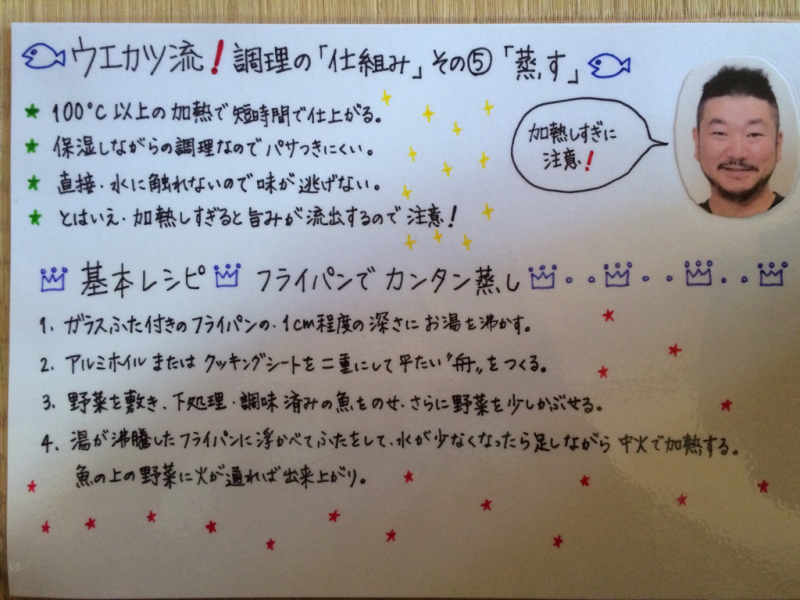 ウエカツ流！調理の「仕組み」その⑤「蒸す」
★ 100℃以上の加熱で短時間で仕上がる。
★ 保湿しながらの調理なのでパサつきにくい。
★ 直接・水に触れないので味が逃げない。
★ とはいえ・加熱しすぎると旨みが流出するので注意！
加熱しすぎに
注意！
基本レシピ フライパンでカンタン蒸し
1. ガラスふた付きのフライパンの・1cm程度の深さにお湯を沸かす。
2. アルミホイルまたはクッキングシートを二重にして平たい〝舟〟をつくる。
3. 野菜を敷き、下処理・調味済みの魚をのせ・さらに野菜を少しかぶせる。
4. 湯が沸騰したフライパンに浮かべてふたをして、水が少なくなったら足しながら 中火で加熱する。
魚の上の野菜に火が通れば出来上がり。